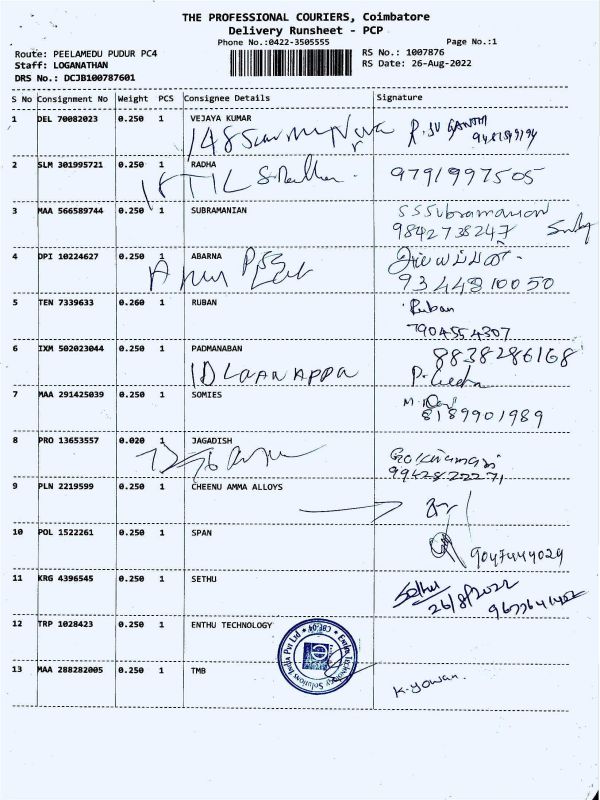 THE PROFESSIONAL COURIERS, Coimbatore
Delivery Runsheet - PCP
Phone No.:0422-3505555 Page No.:1
Route: PEELAMEDU PUDUR PC4 RS No.: 1007876
Staff: LOGANATHAN RS Date: 26-Aug-2022
DRS No.: DCJB100787601
S No Consignment No Weight PCS Consignee Details Signature
1 DEL 70082023 0.250 1 VEJAYA KUMAR
2 SLM 301995721 0.250 1 RADHA
9791997505
3 MAA 566589744 0.250 1 SUBRAMANIAN
SSSubramanian
9842738247
4 DPI 10224627 0.250 1 ABARNA
9344810050
5 TEN 7339633 0.260 1 RUBAN
Ruban
7904554307
6 IXM 502023044 0.250 1 PADMANABAN
8838286168
P. Geetha
7 MAA 291425039 0.250 1 SOMIES
8189901989
8 PRO 13653557 0.020 1 JAGADISH
9 PLN 2219599 0.250 1 CHEENU AMMA ALLOYS
10 POL 1522261 0.250 1 SPAN
9047444029
11 KRG 4396545 0.250 1 SETHU
Sethu
26/8/2022
12 TRP 1028423 0.250 1 ENTHU TECHNOLOGY
Enthu Technology Solutions India Pvt Ltd * CBE-04 *
13 MAA 288282005 0.250 1 TMB
K. yowan.